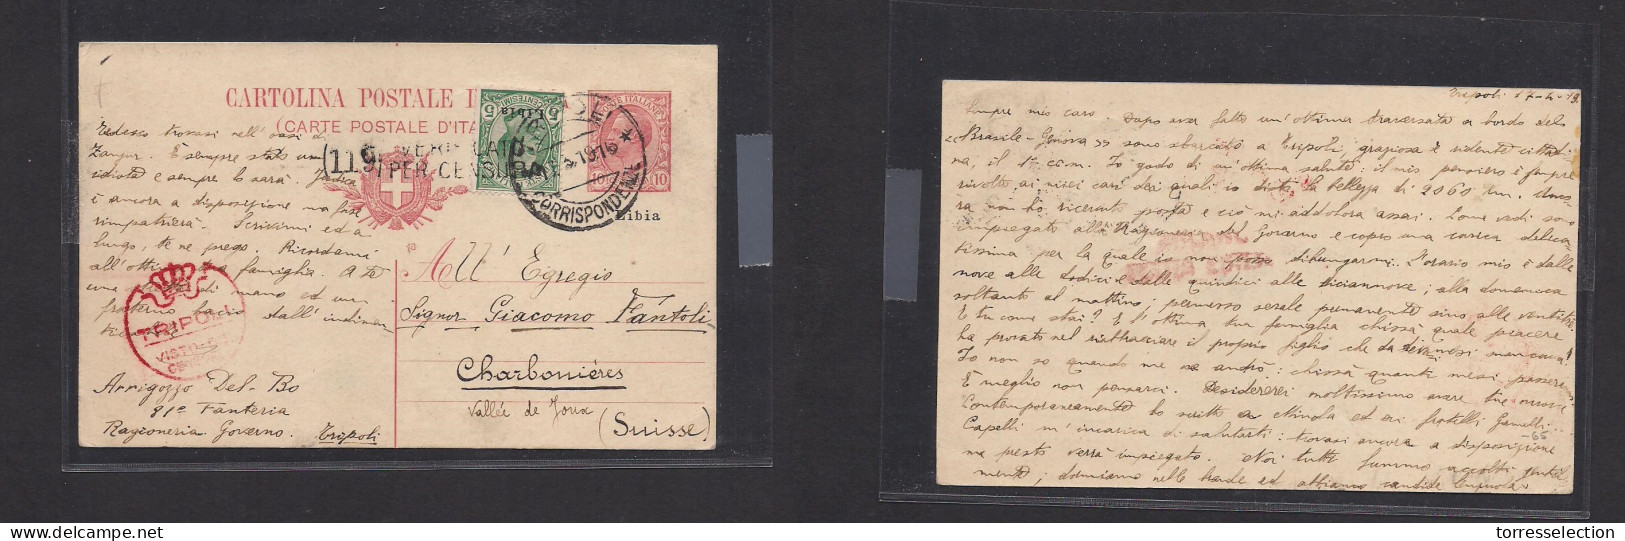 CARTOLINA POSTALE I
(CARTE POSTALE D'ITA
POSTE ITALIANE
5 CENTESIMI 5
Libia
10 10
Libia
(119) VERIFICATO
PER CENSURA
19 16
CORRISPONDENZE
Tedesco trovasi nell'oasi di
Zanzur. È sempre stato un
idiota e sempre lo sarà.
è ancora a disposizione ma forse
rimpatrierà. Scrivimi ed a
lungo, te ne prego. Ricordami
all'ottima tua famiglia. A te
una di mano ed un
fraterno bacio dall'
TRIPOLI
VISTO
Arrigozzo Del-Bo
81° Fanteria
Ragioneria Governo. Tripoli
All' Egregio
Signor Giacomo Fantoli
Charbonières
Vallée de Joux
(Suisse)
Tripoli 17-
Sempre mio caro. Dopo aver fatto un'ottima traversata a bordo del
"Brasile-Genova" sono sbarcato a Tripoli, graziosa e ridente cittadi
na, il 1° c.m. Io godo di un'ottima salute: il mio pensiero è sempre
rivolto ai miei cari dai quali io disto la bellezza di 2060 Km.
ra non ho ricevuto posta e ciò mi addolora assai. Come vedi sono
impiegato alla Ragioneria del Governo e copro una carica delica
tissima per la quale io non posso dilungarmi. L'orario mio è dalle
nove alle dodici e dalle quindici alle diciannove; alla domenica
soltanto al mattino; permesso serale permanente sino alle
E tu come stai? E l'ottima tua famiglia chissà quale piacere
ha provato nel riabbracciare il proprio figlio che da mesi mancava!
Io non so quando me ne andrò: chissà quanti mesi passeranno
È meglio non pensarci. Desidererei moltissimo avere tue nuove.
Contemporaneamente ho scritto a ed ai fratelli
Capelli m'incarica di salutarti: trovasi ancora a disposizione
ma presto verrà impiegato. Noi tutti fummo accolti gentil
mente; dormiamo nelle brande ed abbiamo
-65
torresselection